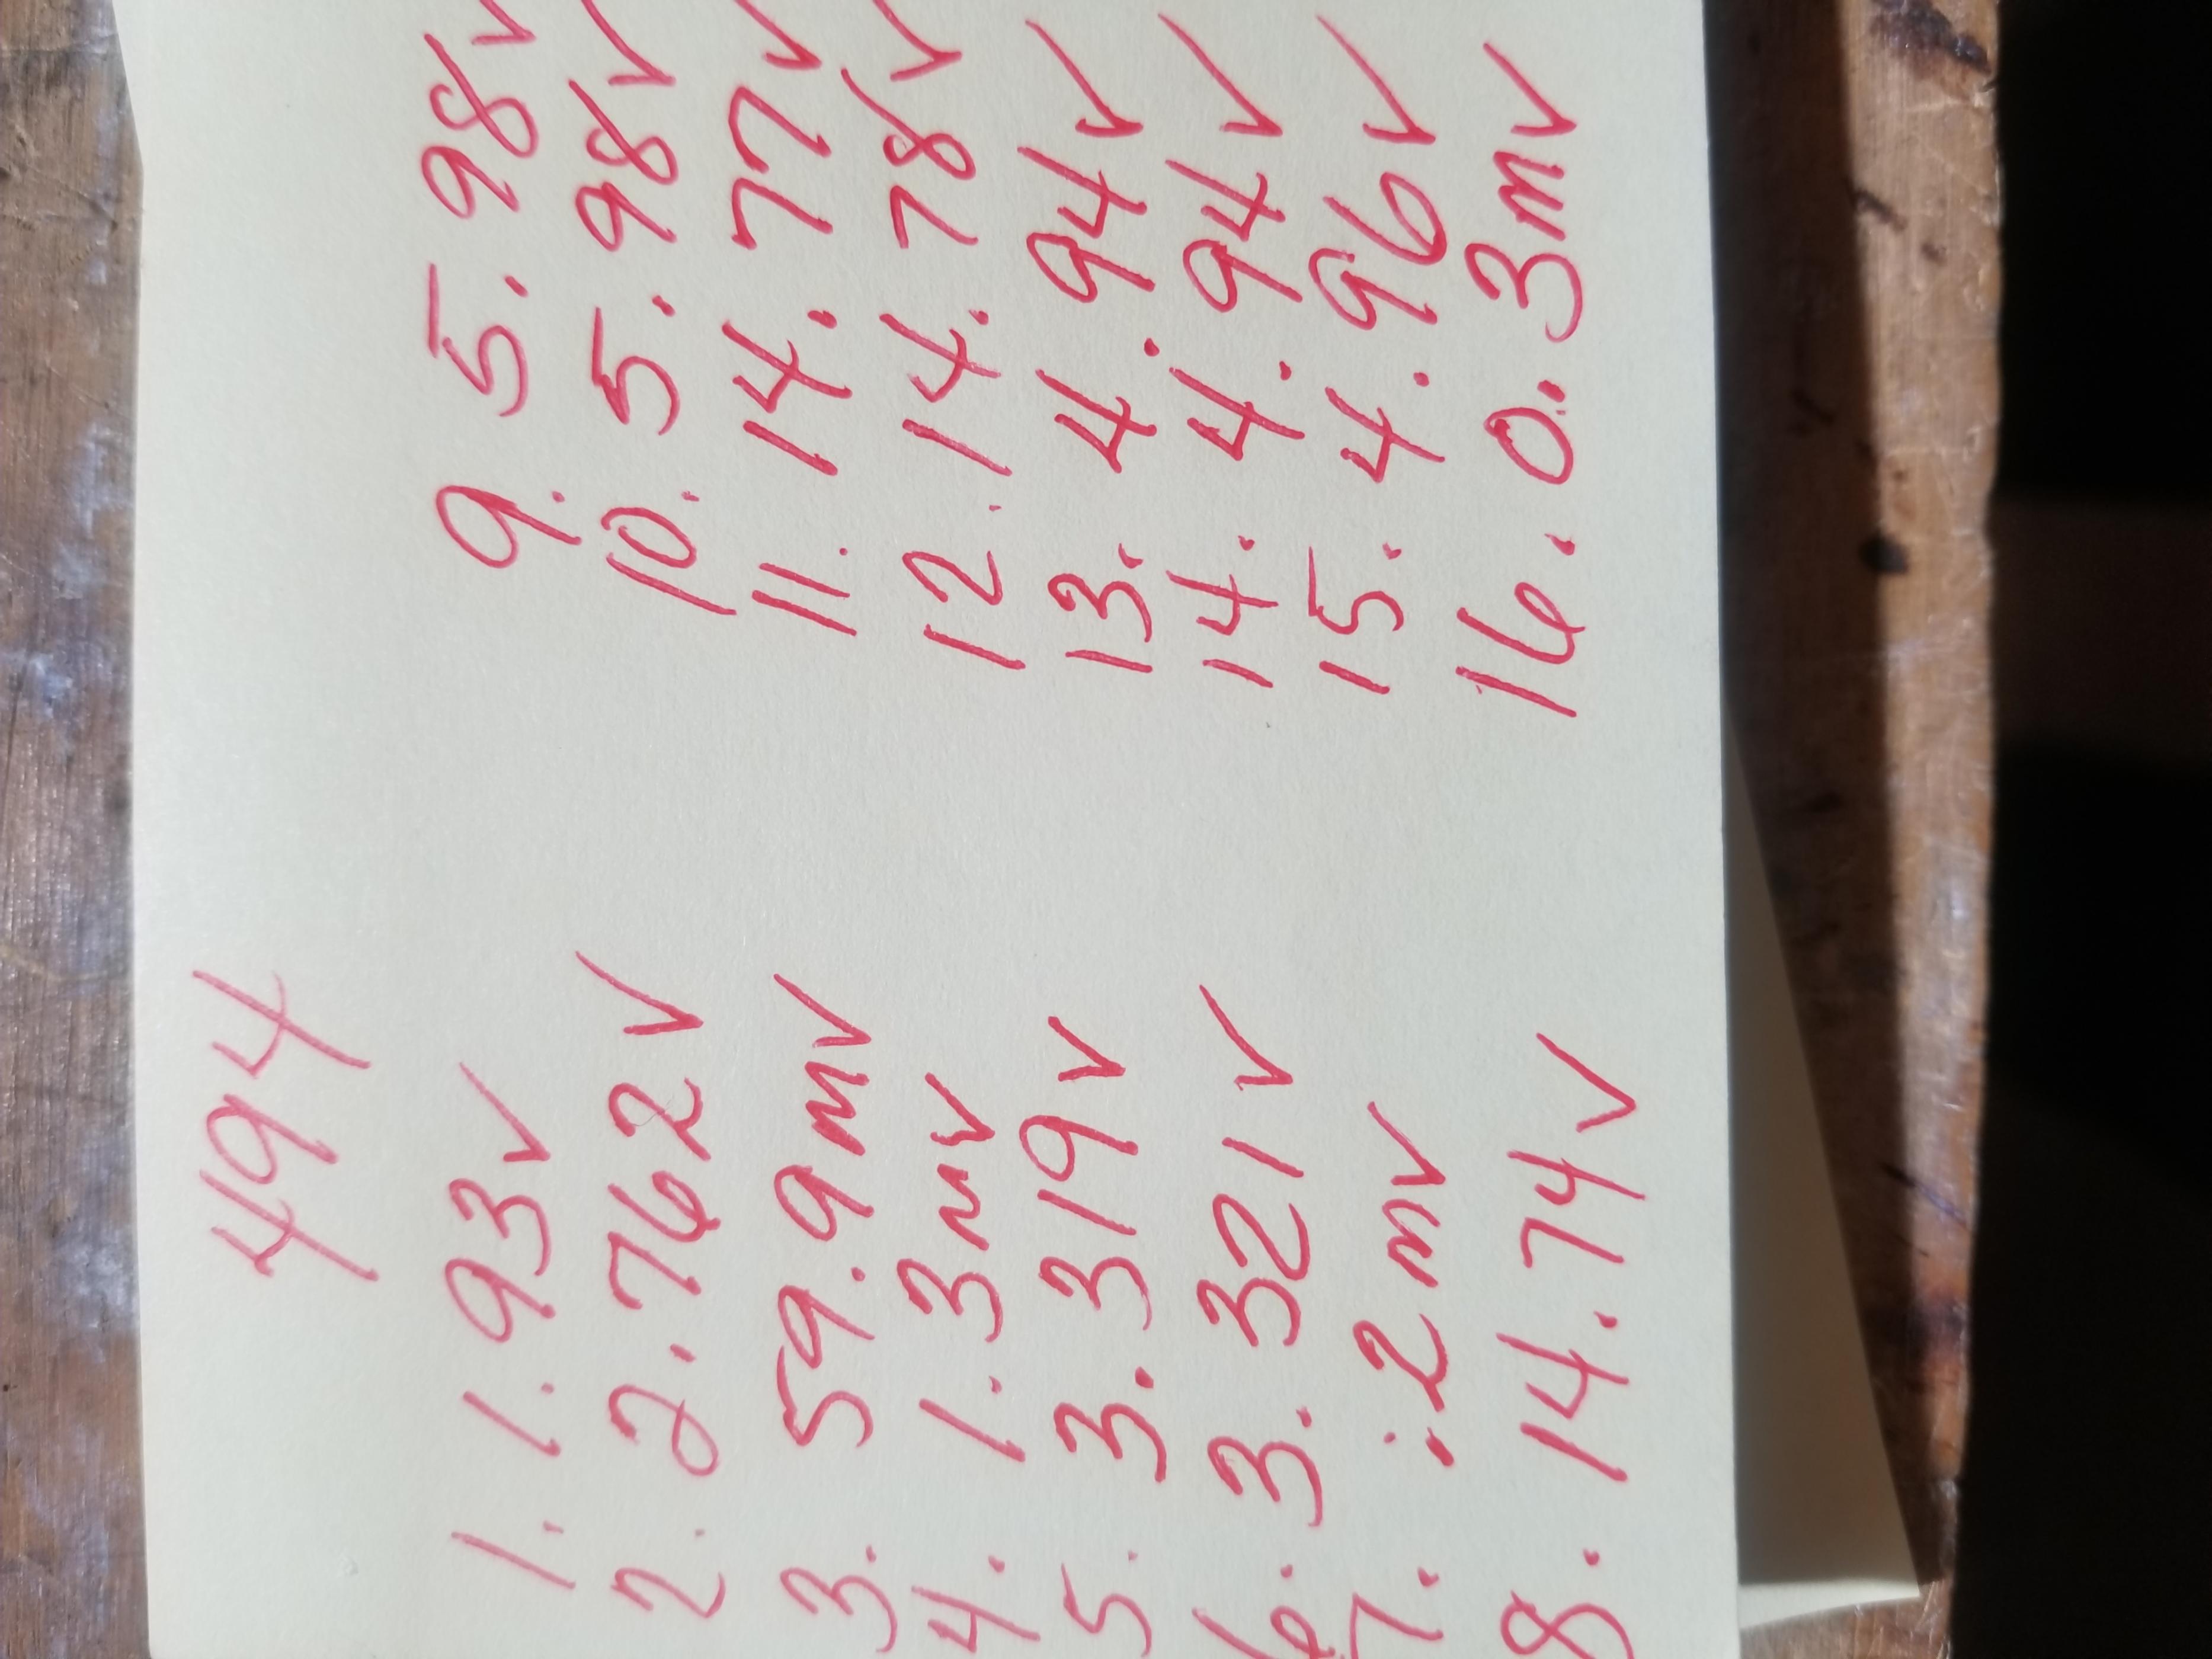 494
1. 1.93v
2. 2.762v
3. 59.9mv
4. 1.3mv
5. 3.319v
6. 3.321v
7. .2mv
8. 14.74v
9. 5.98v
10. 5.98v
11. 14.77v
12. 14.78v
13. 4.94v
14. 4.94v
15. 4.96v
16. 0.3mv